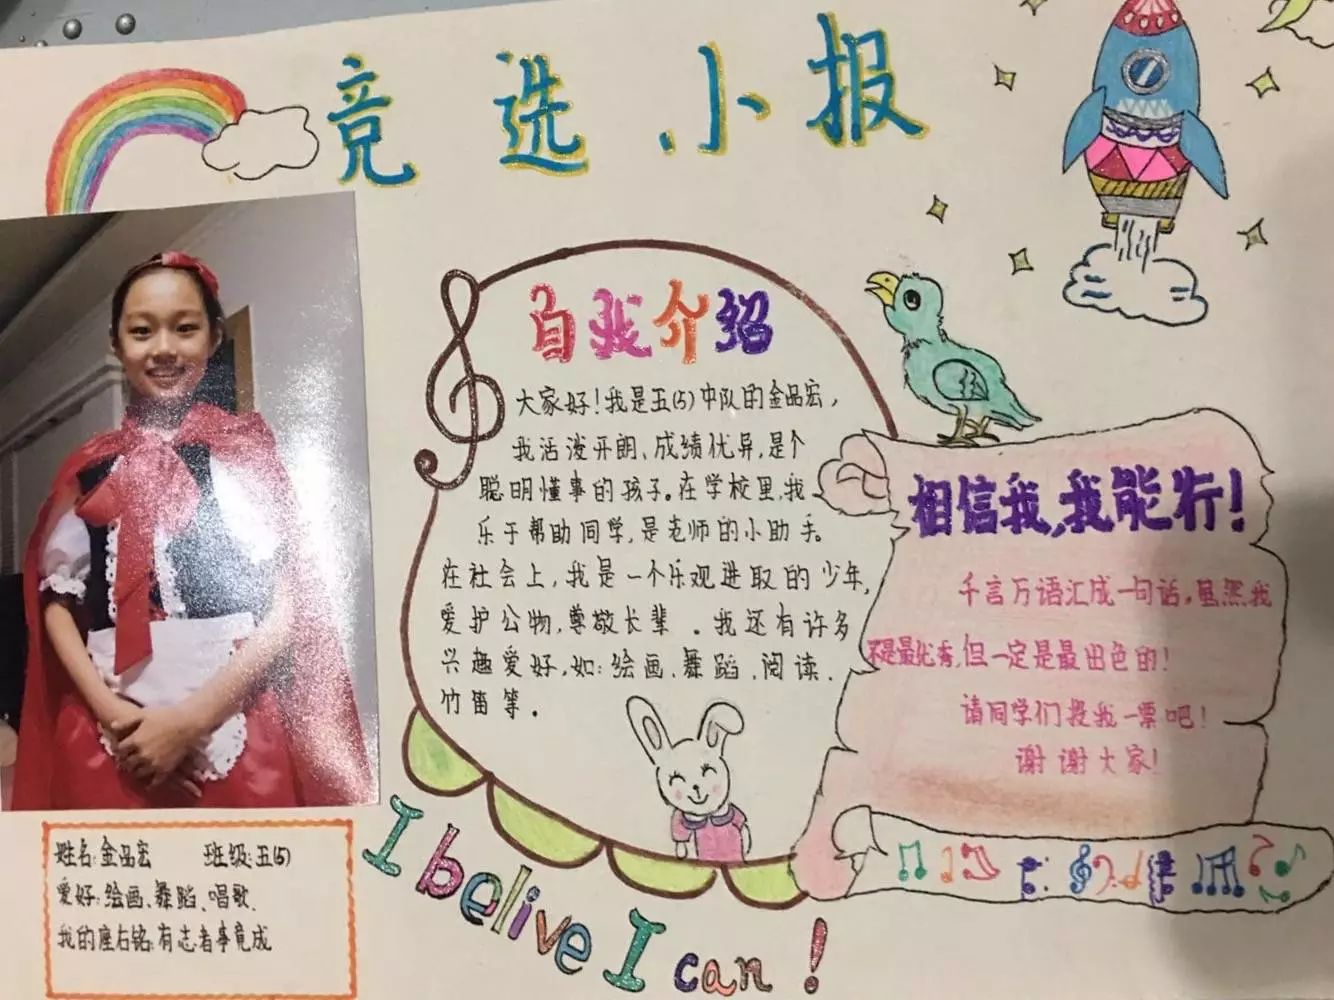 竞选小报
自我介绍
大家好！我是五(5)中队的金品宏，
我活泼开朗、成绩优异，是个
聪明懂事的孩子。在学校里，我
乐于帮助同学，是老师的小助手。
在社会上，我是一个乐观进取的少年，
爱护公物，尊敬长辈。我还有许多
兴趣爱好，如：绘画、舞蹈、阅读、
竹笛等。
相信我，我能行！
千言万语汇成一句话，虽然我
不是最优秀，但一定是最出色的！
请同学们投我一票吧！
谢谢大家！
姓名：金品宏 班级：五(5)
爱好：绘画、舞蹈、唱歌、
我的座右铭：有志者事竟成
I belive I can！